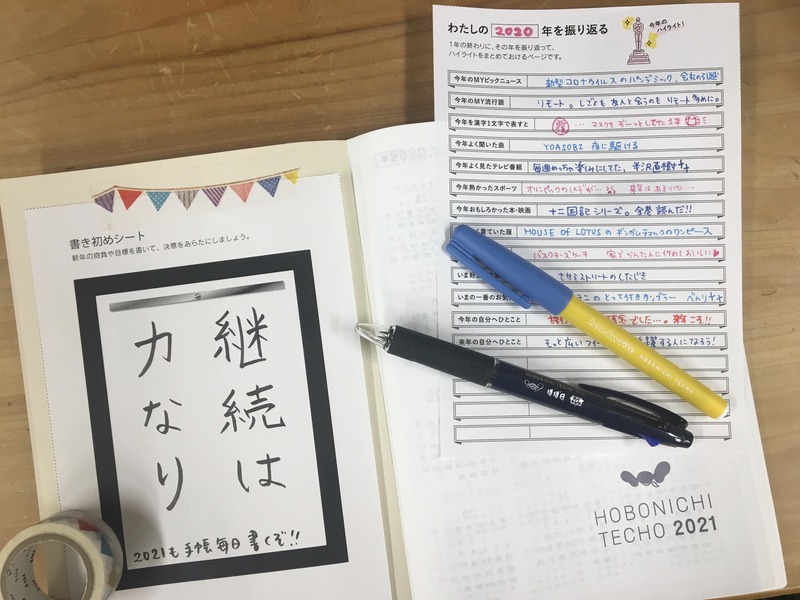 書き初めシート
新年の抱負や目標を書いて、決意をあらたにしましょう。
継続は
力なり
2021も手帳毎日書くぞ!!
わたしの 2020 年を振り返る
今年のハイライト!
1年の終わりに、その年を振り返って、
ハイライトをまとめておけるページです。
今年のMYビックニュース 新型コロナウイルスのパンデミック、
今年のMY流行語 リモート。しごとも友人と会うのもリモート多めに。
今年を漢字1文字で表すと … マスクをずーっとしてた1年
今年よく聞いた曲 YOASOBI 夜に駆ける
今年よく見たテレビ番組 毎週めっちゃ楽しみにしてた、半沢直樹
今年熱かったスポーツ オリンピックの
今年おもしろかった本・映画 十二国記シリーズ。全巻読んだ!!
着ていた服 HOUSE OF LOTUSのギンガムチェックのワンピース
バスクチーズケーキ 家でかんたんに作れておいしい
いま好き セサミストリートのしたじき
いまの一番のお気 こ の とって付きタンブラー べんり
今年の自分へひとこと でした…。来年こそ!!
来年の自分へひとこと もっと広い する人になろう!
HOBONICHI TECHO
HOBONICHI
TECHO 2021